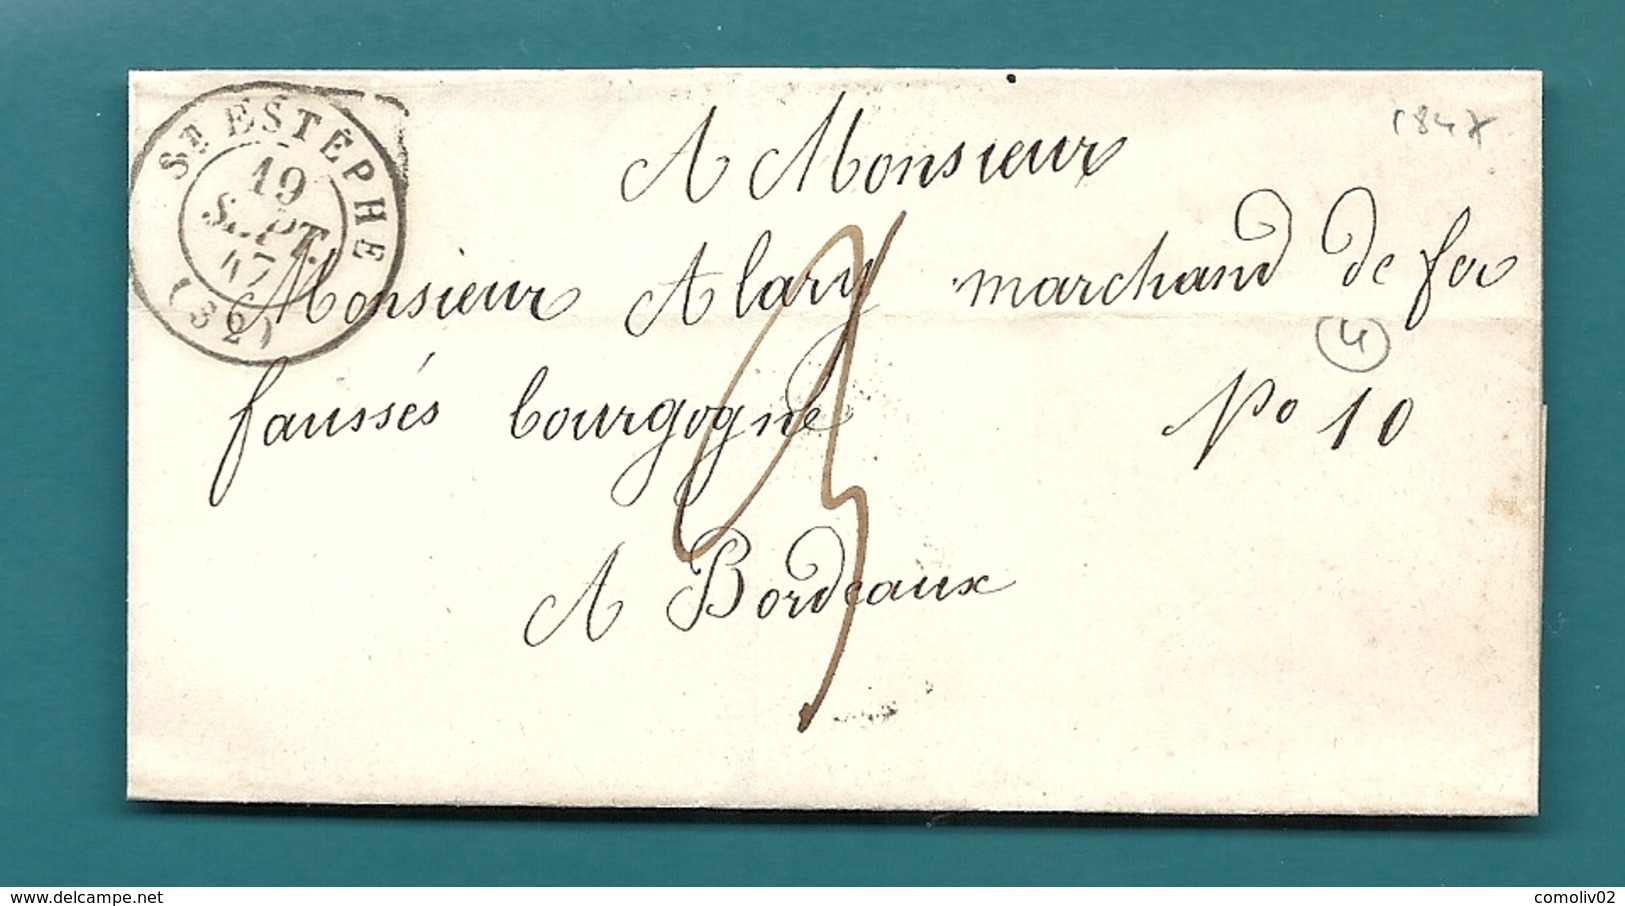 St ESTÈPHE
19
SEPT.
47
(32)
1847
A Monsieur
Monsieur Alary marchand de fer
4
faussés bourgogne No 10
A Bordeaux
comoliv02